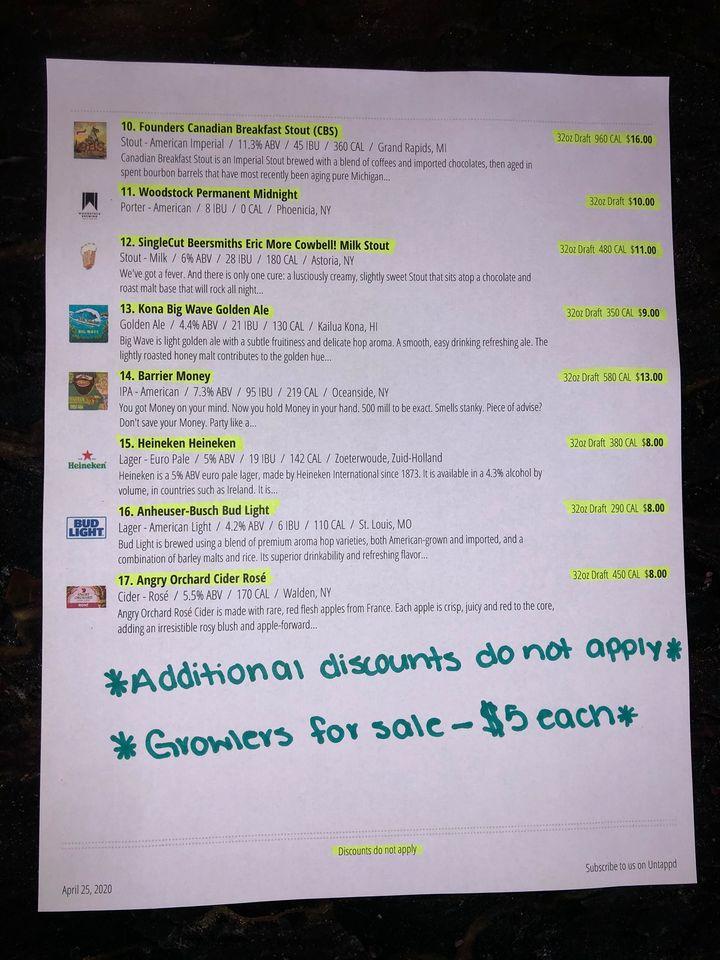 10. Founders Canadian Breakfast Stout (CBS)
32oz Draft 960 CAL $16.00
Stout - American Imperial / 11.3% ABV / 45 IBU / 360 CAL / Grand Rapids, MI
Canadian Breakfast Stout is an Imperial Stout brewed with a blend of coffees and imported chocolates, then aged in
spent bourbon barrels that have most recently been aging pure Michigan...
11. Woodstock Permanent Midnight
32oz Draft $10.00
Porter - American / 8 IBU / 0 CAL / Phoenicia, NY
12. SingleCut Beersmiths Eric More Cowbell! Milk Stout
32oz Draft 480 CAL $11.00
Stout - Milk / 6% ABV / 28 IBU / 180 CAL / Astoria, NY
We've got a fever. And there is only one cure: a lusciously creamy, slightly sweet Stout that sits atop a chocolate and
roast malt base that will rock all night...
13. Kona Big Wave Golden Ale
32oz Draft 350 CAL $9.00
BIG WAVE
Golden Ale / 4.4% ABV / 21 IBU / 130 CAL / Kailua Kona, HI
Big Wave is light golden ale with a subtle fruitiness and delicate hop aroma. A smooth, easy drinking refreshing ale. The
lightly roasted honey malt contributes to the golden hue...
14. Barrier Money
32oz Draft 580 CAL $13.00
IPA - American / 7.3% ABV / 95 IBU / 219 CAL / Oceanside, NY
You got Money on your mind. Now you hold Money in your hand. 500 mill to be exact. Smells stanky. Piece of advise?
Don't save your Money. Party like a...
15. Heineken Heineken
32oz Draft 380 CAL $8.00
Heineken
Lager - Euro Pale / 5% ABV / 19 IBU / 142 CAL / Zoeterwoude, Zuid-Holland
Heineken is a 5% ABV euro pale lager, made by Heineken International since 1873. It is available in a 4.3% alcohol by
volume, in countries such as Ireland. It is...
16. Anheuser-Busch Bud Light
32oz Draft 290 CAL $8.00
BUD
LIGHT
Lager - American Light / 4.2% ABV / 6 IBU / 110 CAL / St. Louis, MO
Bud Light is brewed using a blend of premium aroma hop varieties, both American-grown and imported, and a
combination of barley malts and rice. Its superior drinkability and refreshing flavor...
17. Angry Orchard Cider Rosé
32oz Draft 450 CAL $8.00
Cider - Rosé / 5.5% ABV / 170 CAL / Walden, NY
Angry Orchard Rosé Cider is made with rare, red flesh apples from France. Each apple is crisp, juicy and red to the core,
adding an irresistible rosy blush and apple-forward...
*Additional discounts do not apply*
*Growlers for sale - $5 each*
Discounts do not apply
Subscribe to us on Untappd
April 25, 2020